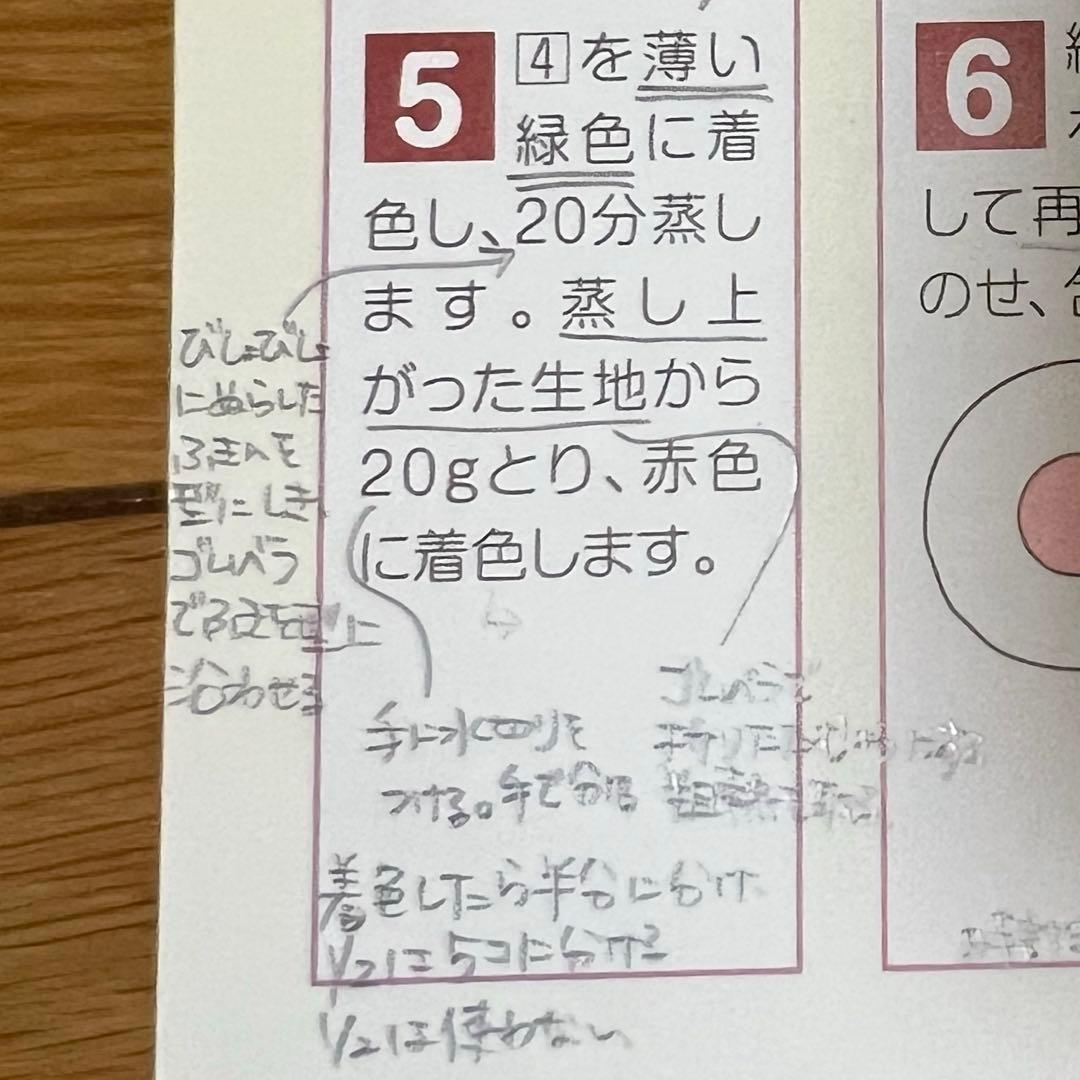 5
4を薄い
緑色に着
色し、20分蒸し
ます。蒸し上
がった生地から
20gとり、赤色
に着色します。
びしょびしょ
にぬらした
ふきんを
型にしき
ゴムベラ
で
合わせる
手に水
つける。手で分ける
ゴムベラで
粗熱
着色したら半分に分け
1/2に5コに分け
1/2は使わない
6
して再
のせ、